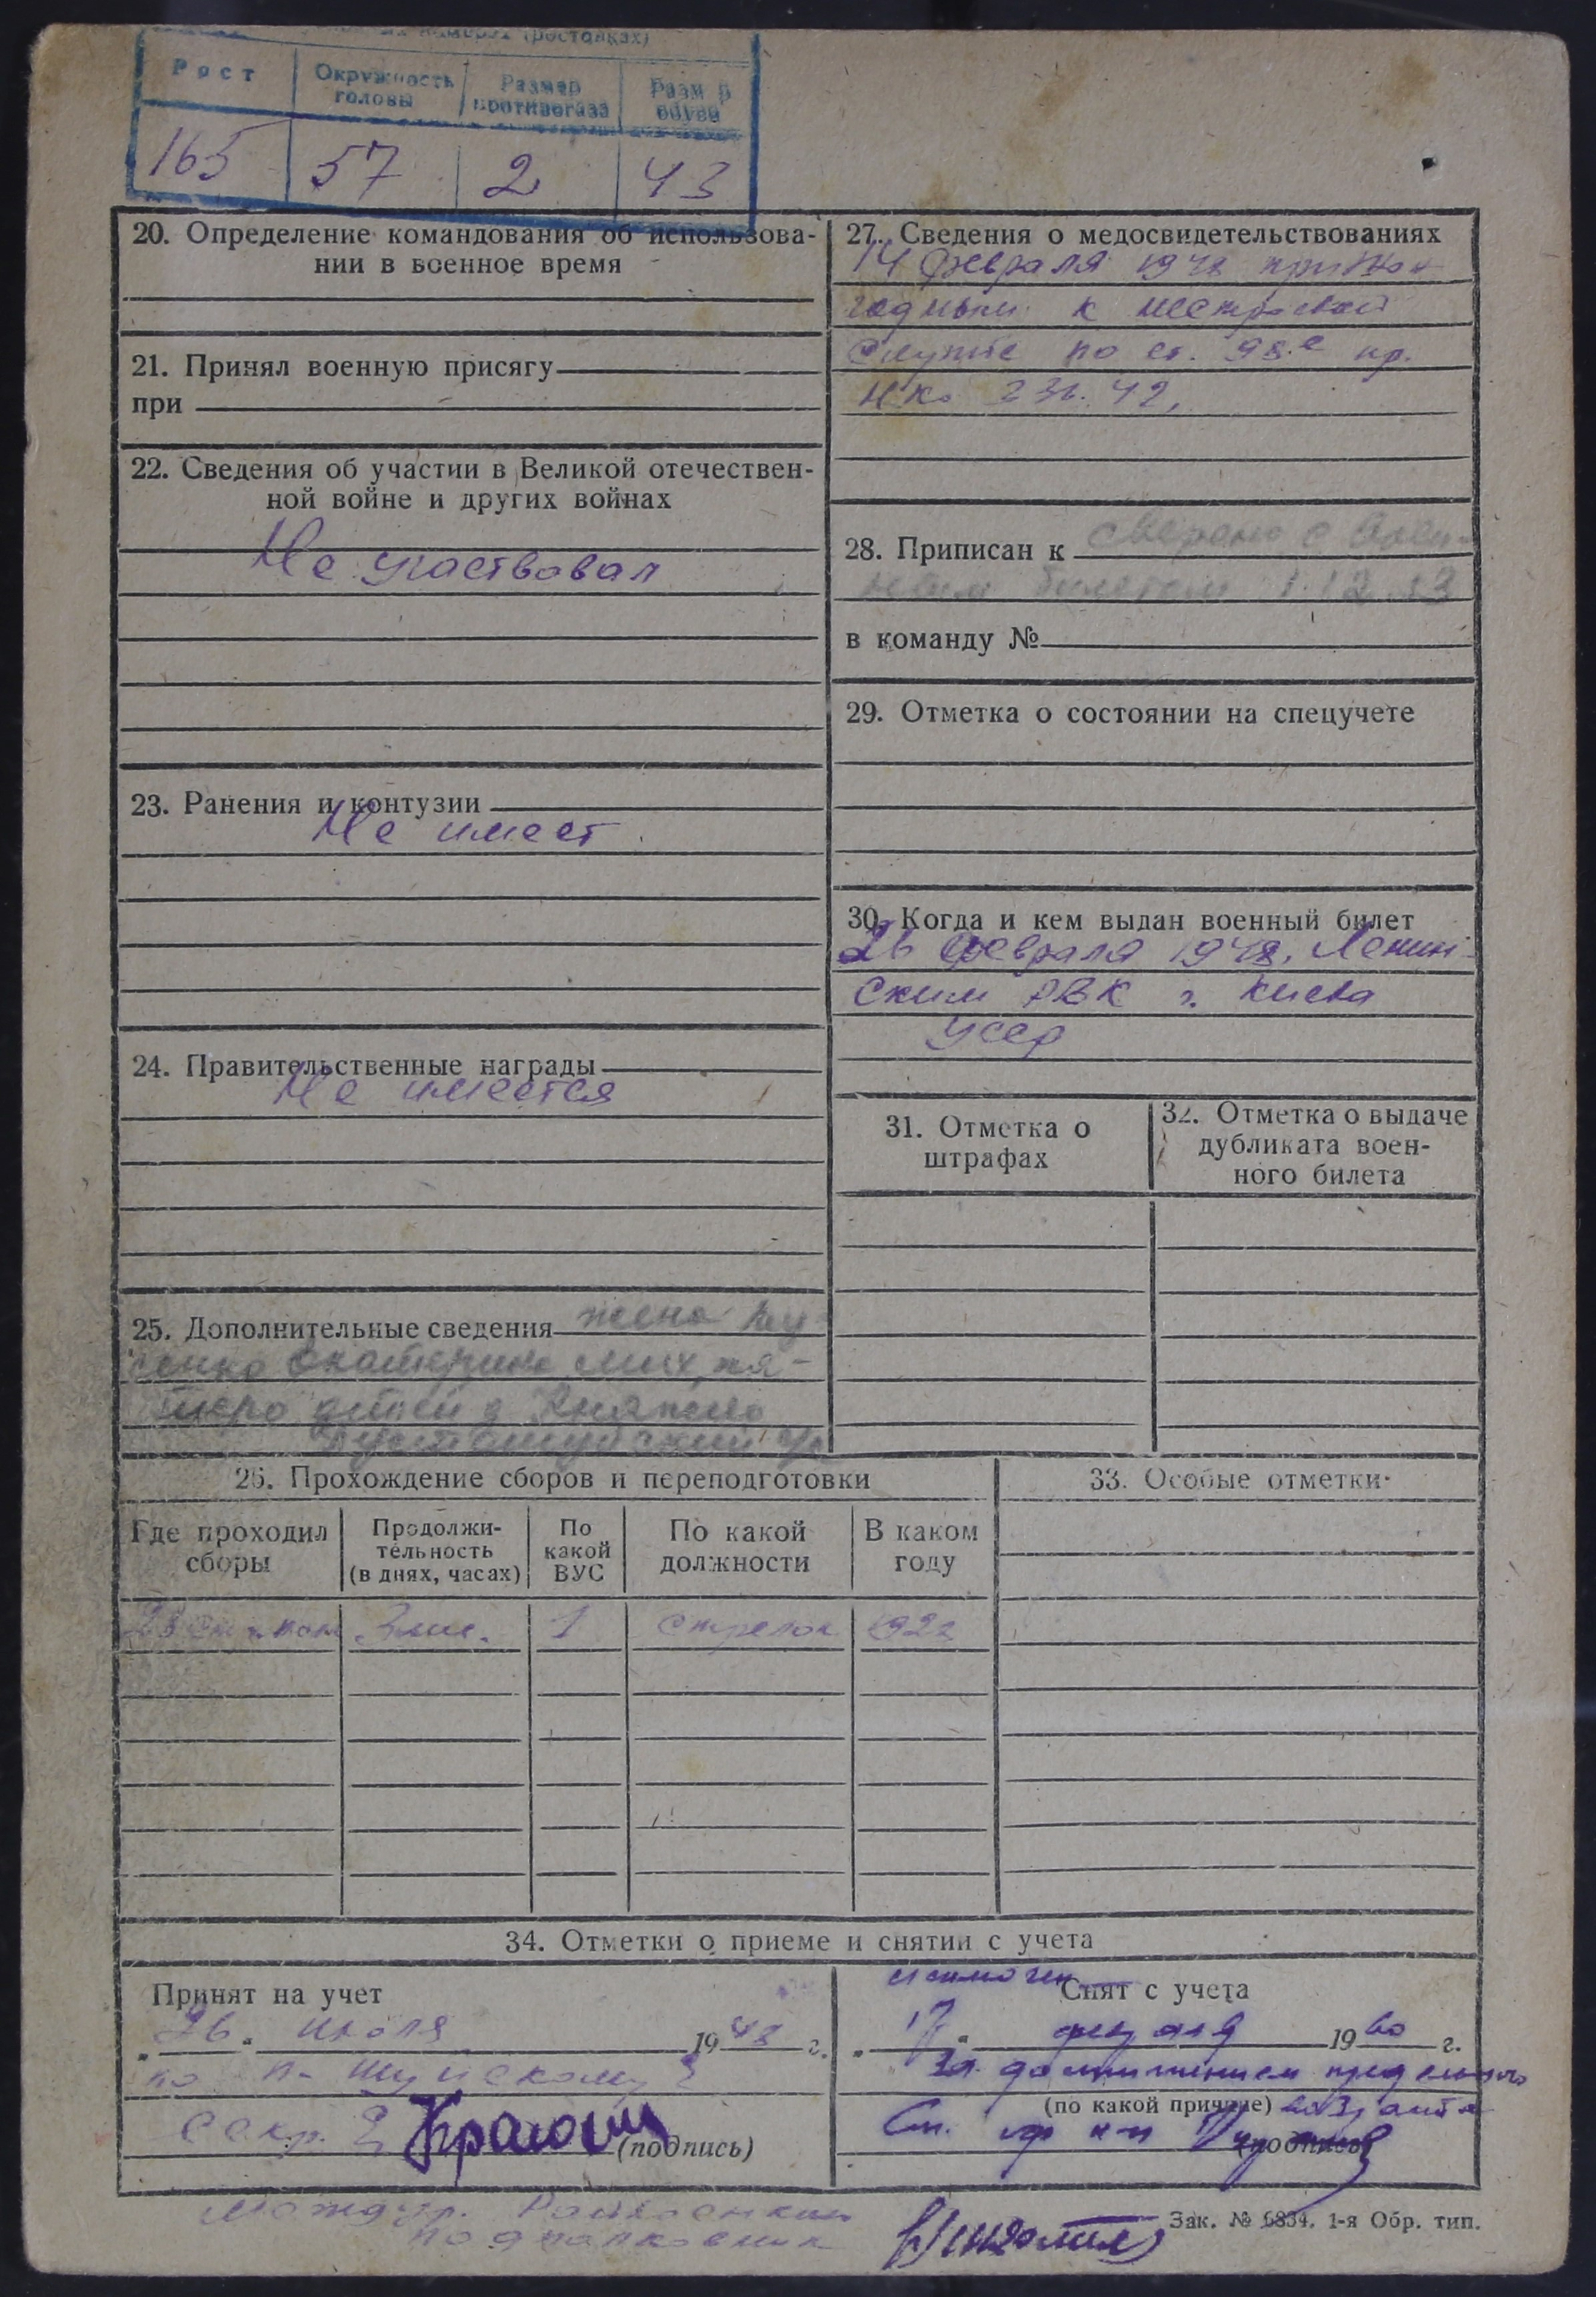 (ростовках)
Рост
Окружность головы
Размер противогаза
Разм р обуви
165 57 2 43
20. Определение командования об использова-
нии в военное время
21. Принял военную присягу
при
22. Сведения об участии в Великой отечествен-
ной войне и других войнах
Не участвовал
23. Ранения и контузии
Не имеет
24. Правительственные награды
Не имеется
25. Дополнительные сведения жена
Екатерина Мих. пя-
теро детей д. Княжево
27. Сведения о медосвидетельствованиях
14 февраля 1948 признан
годным к нестроевой
службе по ст. 98.е пр.
НКО 336. 42.
28. Приписан к сверено с воен-
ным билетом 1.12.53
в команду №
29. Отметка о состоянии на спецучете
30. Когда и кем выдан военный билет
26 февраля 1948. Ленин-
ским РВК г. Киева
УССР
31. Отметка о
штрафах
32. Отметка о выдаче
дубликата воен-
ного билета
26. Прохождение сборов и переподготовки
Где проходил сборы
Продолжи-
тельность
(в днях, часах)
По какой ВУС
По какой должности
В каком году
3 мес. 1 стрелок 1922
33. Особые отметки
34. Отметки о приеме и снятии с учета
Принят на учет
„26" июля 1948 г.
(подпись)
подполковник
исключен
Снят с учета
„17" февраля 1960 г.
за достижением предельного
(по какой причине) возраста
(подпись)
Зак. № 6834. 1-я Обр. тип.